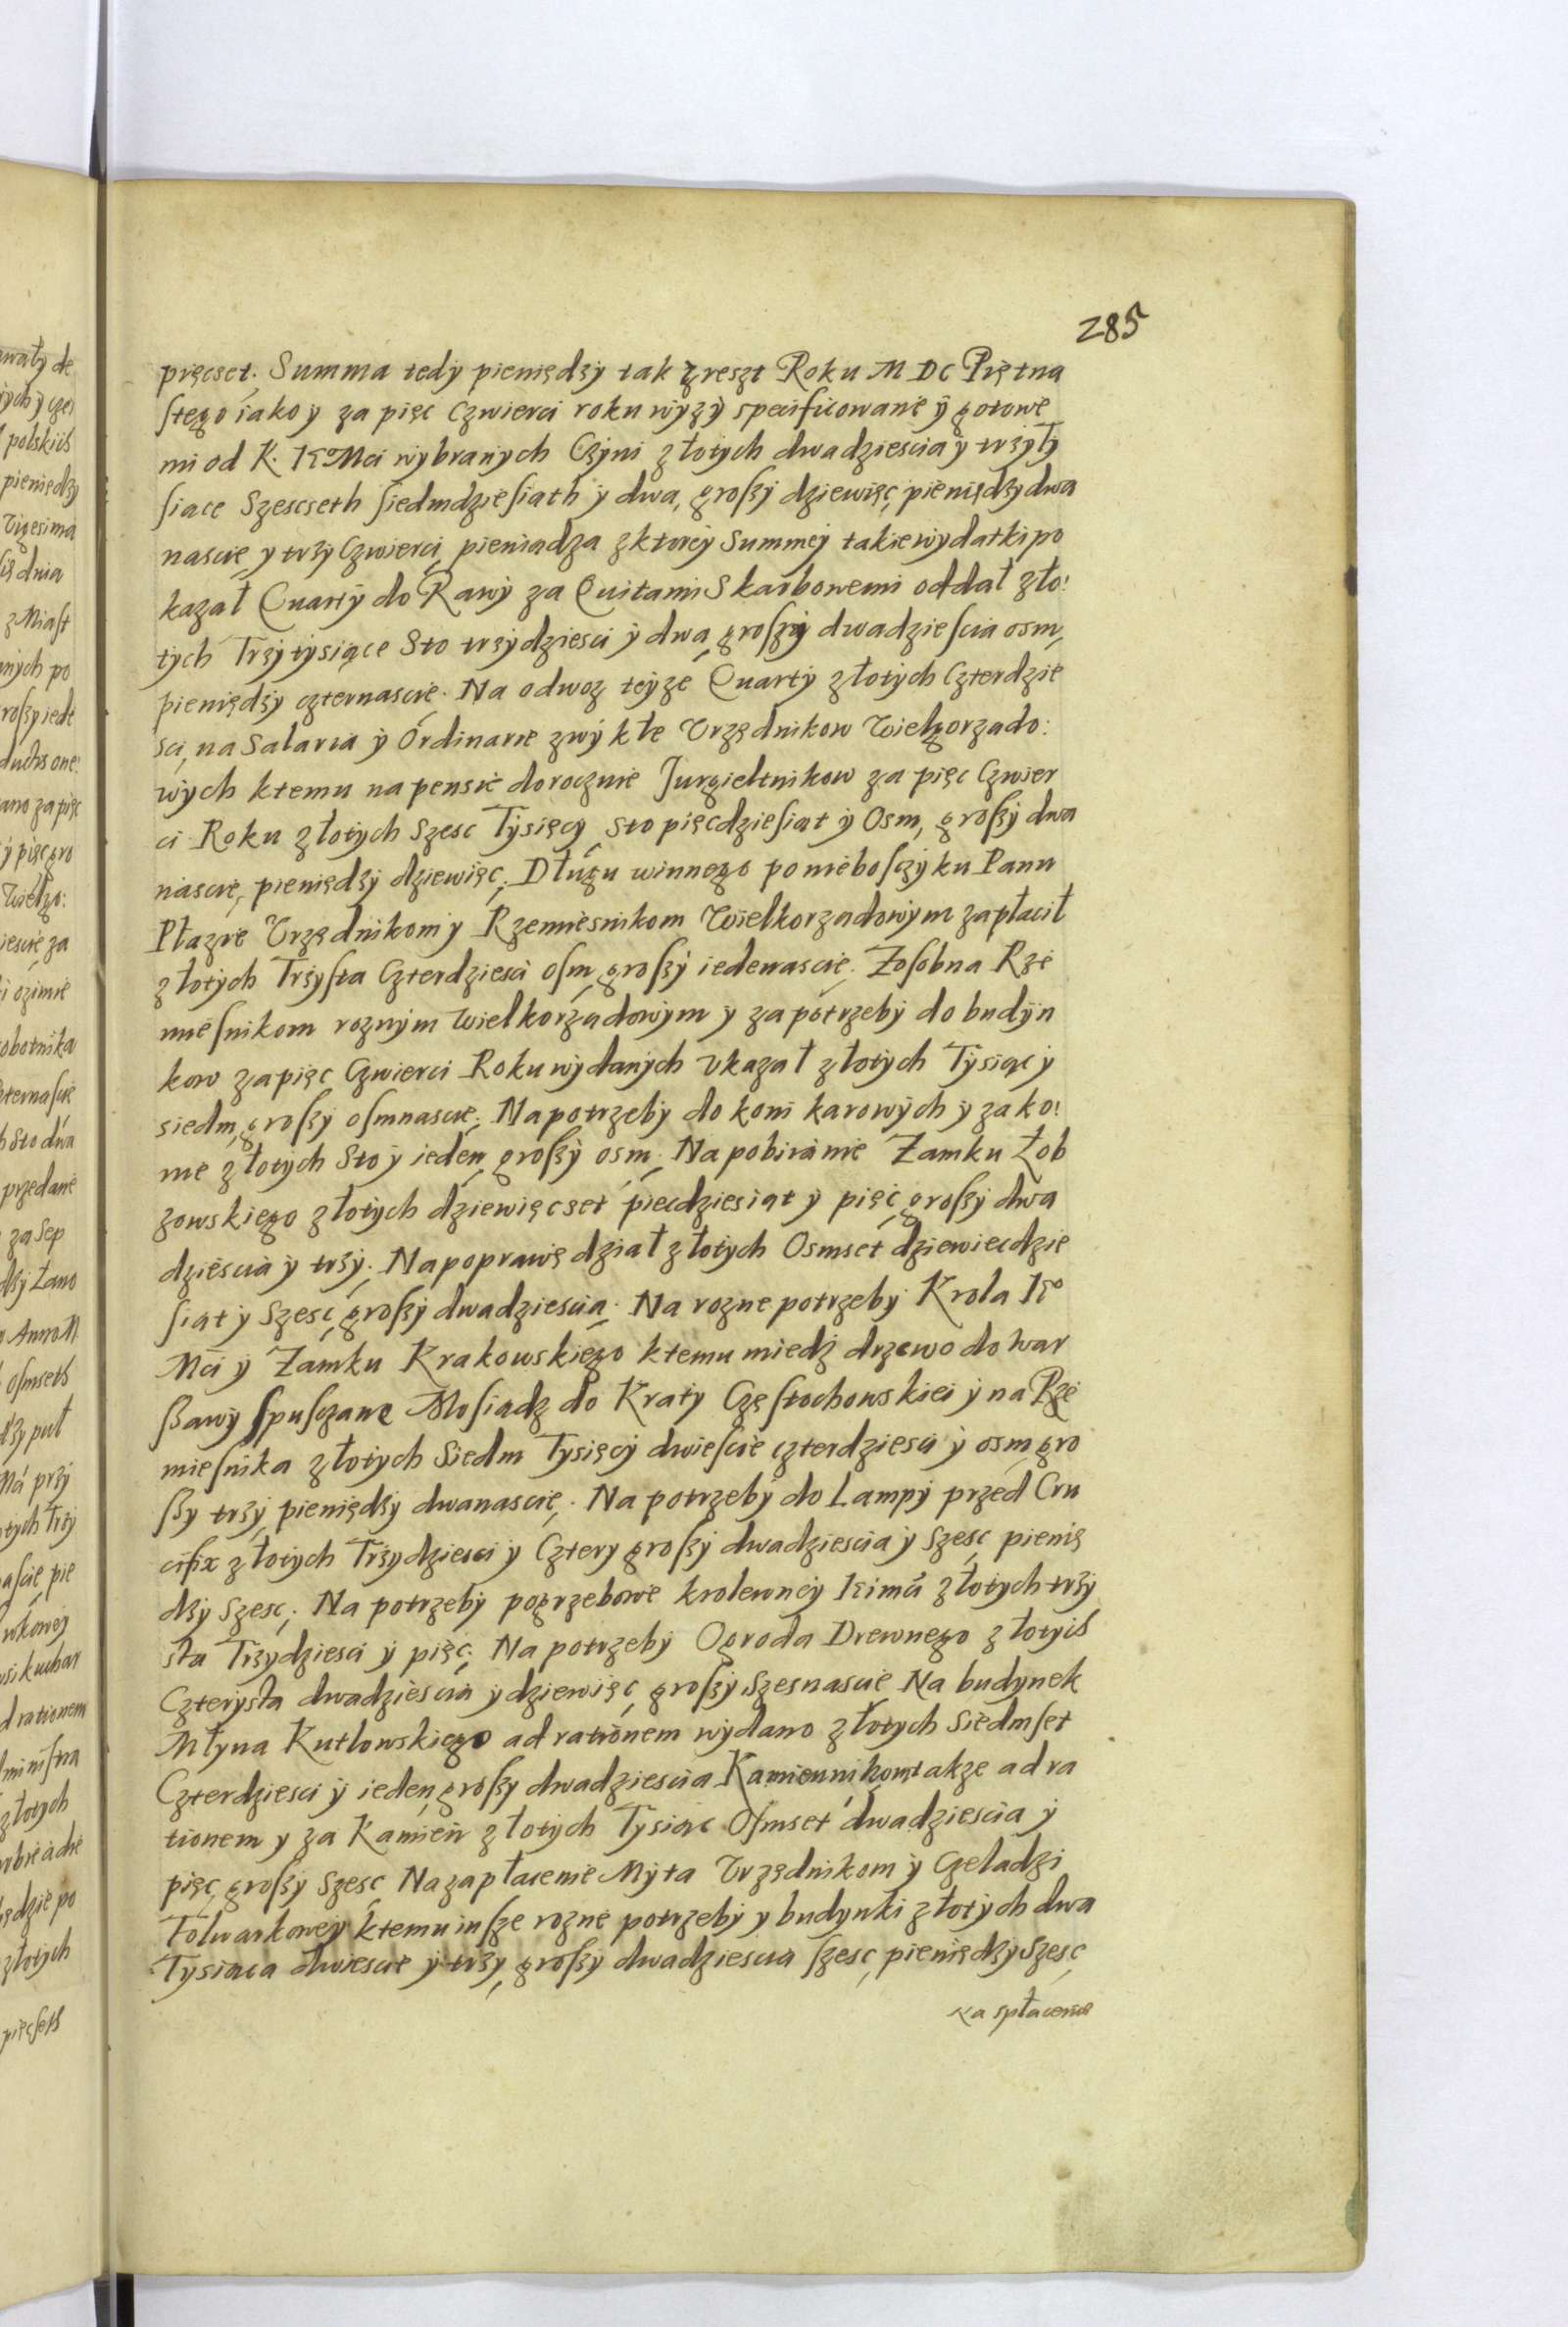 285
pięcset. Summa tedy pieniędzy tak z reszt Roku M DC Piętna
stego iako y za pięc Czwierci roku wyzy specificowanie y gotowe
mi od K. Mci wybranych Czyni złotych dwadziescia y trzy ty
siace Szescseth siedmdziesiath y dwa, groszy dziewięc, pieniędzy dwa
nascie y trzy Czwierci, pieniadza z ktorey Summey takie wydatki po
kazał Cuarty do Rawy za Quitami Skarbowemi oddał zło:
tych Trzy tysiące Sto trzydziesci y dwa, groszy dwadziescia osm,
pieniędzy czternascie. Na odwoz teyze Quarty złotych Czterdzie
sci, na Salaria y Ordinarie zwykłe Vrzędnikow Wielgorzado:
wych ktemu na pensie dorocznie Jurgieltnikow za pięc Czwier
ci Roku złotych Szesc Tysięcy, sto pięcdziesiat y Osm, groszy dwa
nascie, pieniędzy dziewięc. Długu winnego po nieboszczyku Panu
Płazie Vrzędnikom y Rzemiesnikom Wielkorzadowym zapłacił
złotych Trzysta Czterdziesci osm, groszy iedenascie. Zosobna Rze
miesnikom roznym wielkorządowym y za potrzeby do budyn
kow za pięc Czwierci Roku wydanych Vkazał złotych Tysiąc y
siedm, groszy osmnascie. Na potrzeby do koni karowych y za ko:
nie złotych Sto y ieden, groszy osm. Na pobiianie Zamku Łob
zowskiego złotych dziewięcset piecdziesiąt y pięć, groszy dwa
dziescia y trzy. Na poprawę dział złotych Osmset dziewiecdzie
siąt y Szesc, groszy dwadziescia. Na rozne potrzeby Krola
Mci y Zamku Krakowskiego ktemu miedz drzewo do War
szawy spusczane Mosiądz do Kraty Częstochowskiei y na Rze
miesnika złotych Siedm Tysięcy dwiescie czterdziesci y osm, gro
szy trzy, pieniędzy dwanascie. Na potrzeby do Lampy przed Cru
cifix złotych Trzydziesci y Cztery groszy dwadziescia y szesc pienię
dzy Szesc. Na potrzeby pogrzebowe krolewney złotych trzy
sta Trzydziesci y pięc. Na potrzeby Ogroda Drewnego złotych
Czterysta dwadziescia y dziewięc, groszy Szesnascie Na budynek
Młyna Kutlowskiego ad rationem wydano złotych Siedmset
Czterdziesci y ieden, groszy dwadziescia Kamiennikom takze ad ra
tionem y za Kamien złotych Tysiąc Osmset dwadziescia y
pięc, groszy Szesc Na zapłacenie Myta Vrzędnikom y Czeladzi
Folwarkowey ktemu insze rozne potrzeby y budynki złotych dwa
Tysiaca dwiescie y trzy, groszy dwadziescia szesc, pieniędzy Szesc,
Na spłacenie